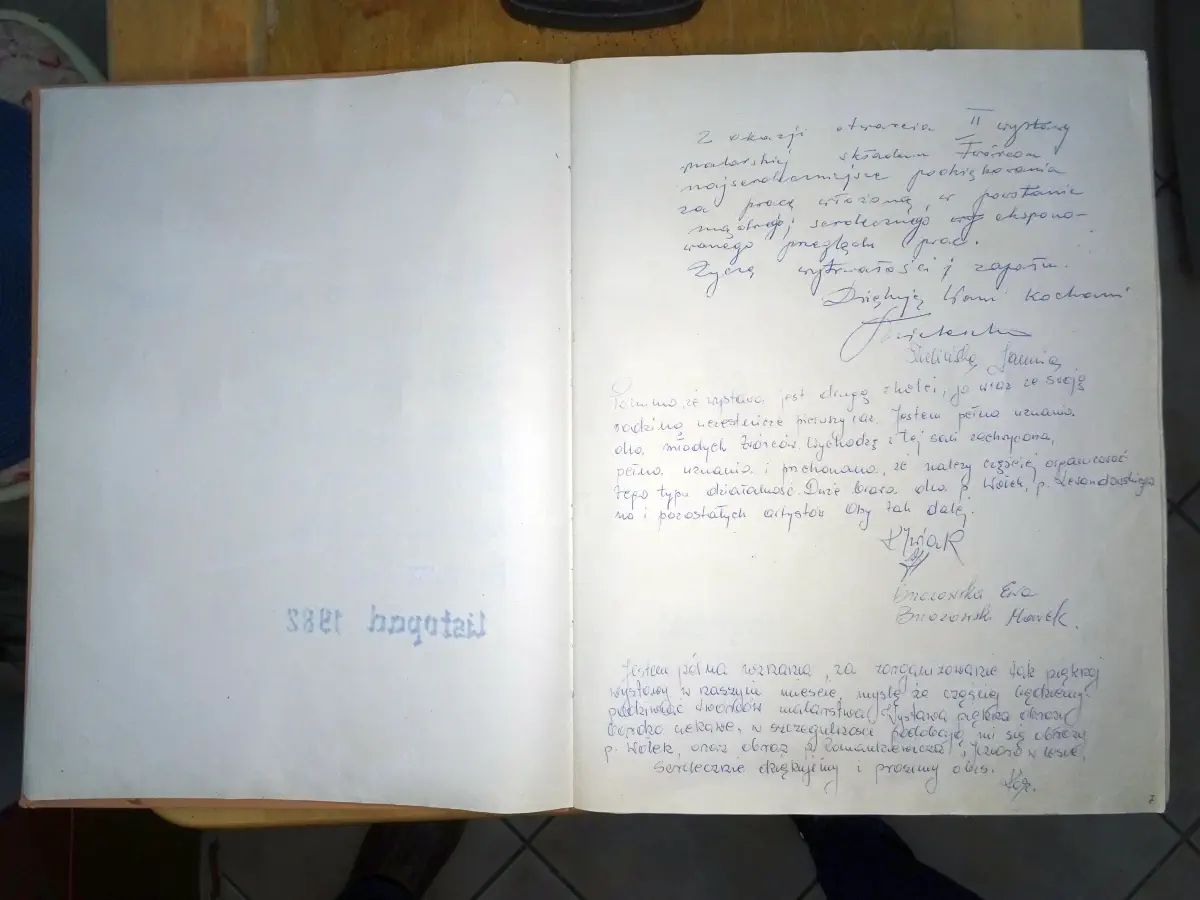 Listopad 1982
Z okazji otwarcia II wystawy
malarskiej składam Twórcom
najserdeczniejsze podziękowania
za pracę włożoną w powstanie
mądrego i serdecznego ekspono-
wanego przeglądu prac.
Życzę wytrwałości i zapału.
Dziękuję Wam Kochani
Pomimo, że wystawa jest drugą z kolei, ja wraz ze swoją
rodziną uczestniczę pierwszy raz. Jestem pełna uznania
dla młodych twórców. Wychodzę z tej sali zachwycona,
pełna uznania i przekonana, że należy częściej organizować
tego typu działalność. Duże brawa dla p. Wołek, p. Lewandowskiego
i pozostałych artystów Oby tak dalej.
Brzozowska Ewa
Brzozowski Marek.
Jestem pełna uznania, za zorganizowanie tak pięknej
wystawy w naszym mieście, myślę że częściej będziemy
podziwiać twórców malarstwa. Wystawa piękna obrazy
bardzo ciekawe, w szczególności podobają mi się obrazy
p. Wołek, oraz obraz p.
Serdecznie dziękujemy i prosimy o bis.
7